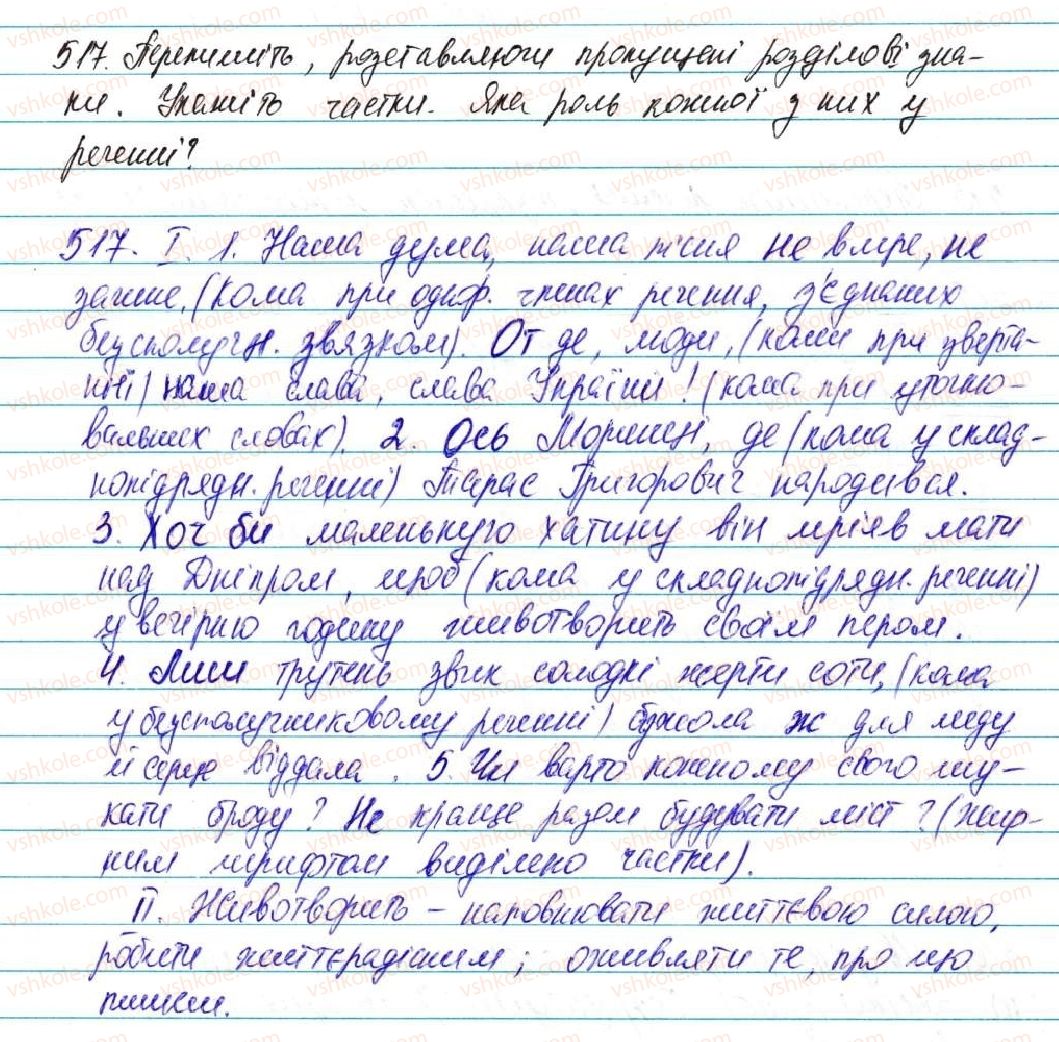 517. Перепишіть, розставляючи пропущені розділові зна-
ки. Укажіть частки. Яка роль кожної з них у
реченні?
517. І. 1. Наша дума, наша пісня не вмре, не
загине, (кома при однор. членах речення, з'єднаних
безсполучн. звязком). От де, люди, (коми при зверта-
нні) наша слава, слава України! (кома при уточню-
вальних словах). 2. Ось Моринці, де (кома у склад-
нопідрядн. реченні) Тарас Григорович народився.
3. Хоч би маленьку хатину він мріяв мати
над Дніпром, щоб (кома у складнопідрядн. реченні)
у вечірню годину животворить своїм пером.
4. Лиш трутень звик солодкі жерти соти, (кома
у безсполучниковому реченні) бджола ж для меду
й серце віддала. 5. Чи варто кожному свого шу-
кати броду? Не краще разом будувати міст? (Жир-
ним шрифтом виділено частки).
ІІ. Животворить – наповнювати життєвою силою,
робити життєрадісним; оживляти те, про що
пишеш.